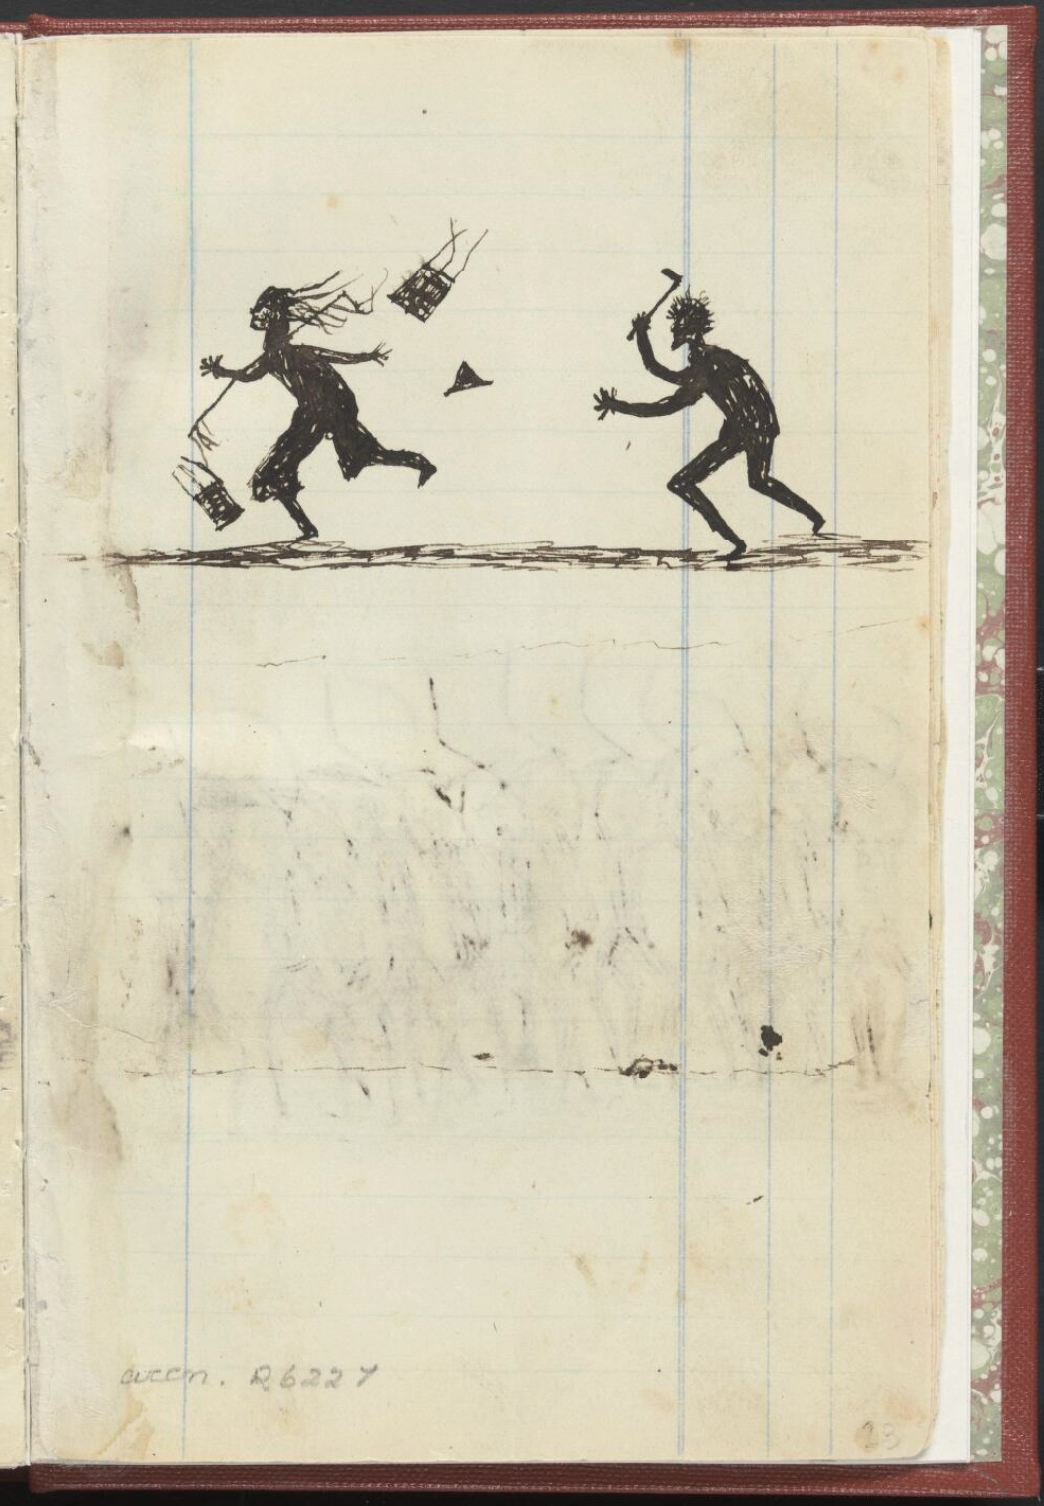 accn. R6227
28